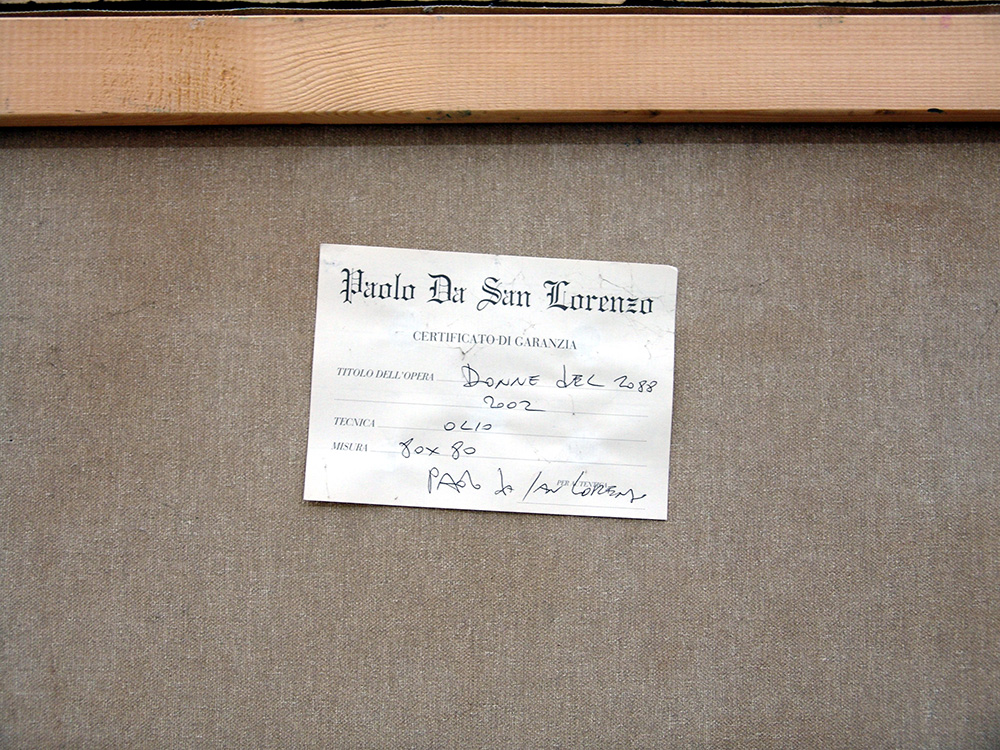 Paolo Da San Lorenzo
CERTIFICATO DI GARANZIA
TITOLO DELL'OPERA DONNE DEL 2088
2002
TECNICA OLIO
MISURA 80x80
PER AUTENTICA
PAOLO da SAN LORENZO